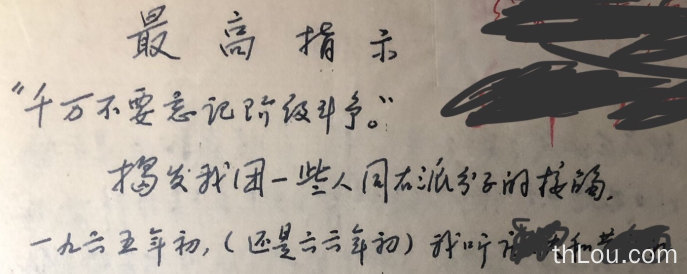 最高指示
“千万不要忘记阶级斗争。”
揭发我团一些人同右派分子的接触.
一九六五年初,(还是六六年初)我听说 和
thLou.com